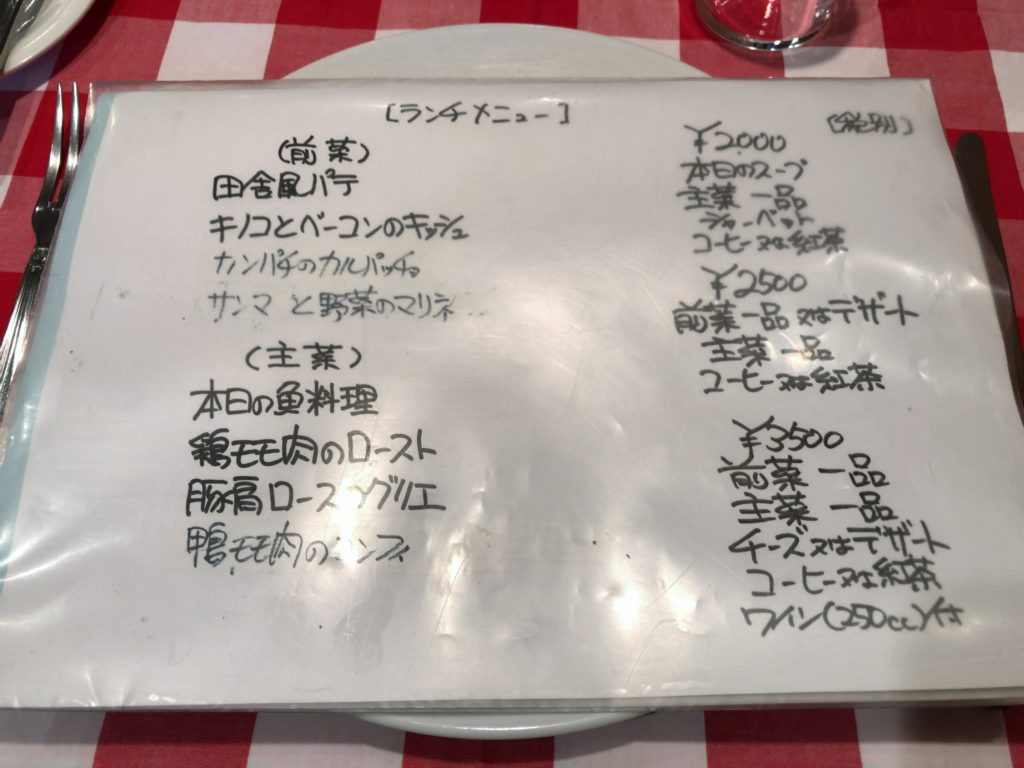 [ランチメニュー]
(前菜)
田舎風パテ
キノコとベーコンのキッシュ
カンパチのカルパッチョ
サンマ と野菜のマリネ
(主菜)
本日の魚料理
鶏モモ肉のロースト
豚肩ロース グリエ
鴨モモ肉のコンフィ
(税別)
¥2000
本日のスープ
主菜 一品
シャーベット
コーヒー又は紅茶
¥2500
前菜一品 又はデザート
主菜 一品
コーヒー又は紅茶
¥3500
前菜 一品
主菜 一品
チーズ又はデザート
コーヒー又は紅茶
ワイン(250cc)付